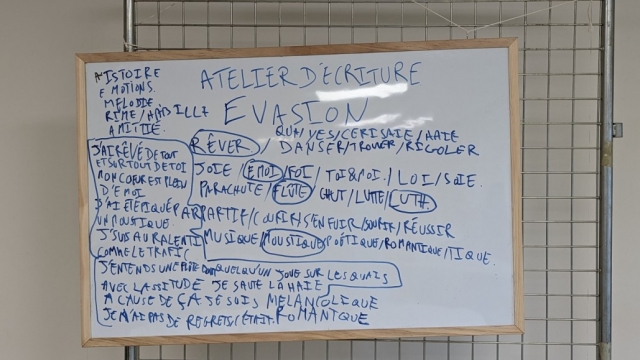 HISTOIRE
EMOTIONS.
MELODIE
RIME /
AMITIÉ.
ATELIER D'ECRITURE
EVASION
/CERISAIE/HAIE
RÊVER / DANSER/TROUER/RIGOLER
JOIE / EMOI/FOI / TOI&MOI / LOI/SOIE.
PARACHUTE / FLUTE / CHUT/LUTTE/LUTH.
PARTIR/COURIR/S'ENFUIR/SOURIR/RÉUSSIR
MUSIQUE/MOUSTIQUE/POÉTIQUE/ROMANTIQUE/TIQUE.
J'AI RÊVÉ DE TOUT
ET SURTOUT DE TOI
MON COEUR EST PLEIN
D'EMOI
J'AI ETE PIQUÉ PAR
UN MOUSTIQUE.
J'SUIS AU RALENTI
COMME LE TRAFIC
J'ENTENDS UNE FLÛTE DONT QUELQU'UN JOUE SUR LES QUAIS
AVEC LASSITUDE JE SAUTE LA HAIE
A CAUSE DE ÇA JE SUIS MELANCOLIQUE
JE N'AI PAS DE REGRETS C'ETAIT ROMANTIQUE